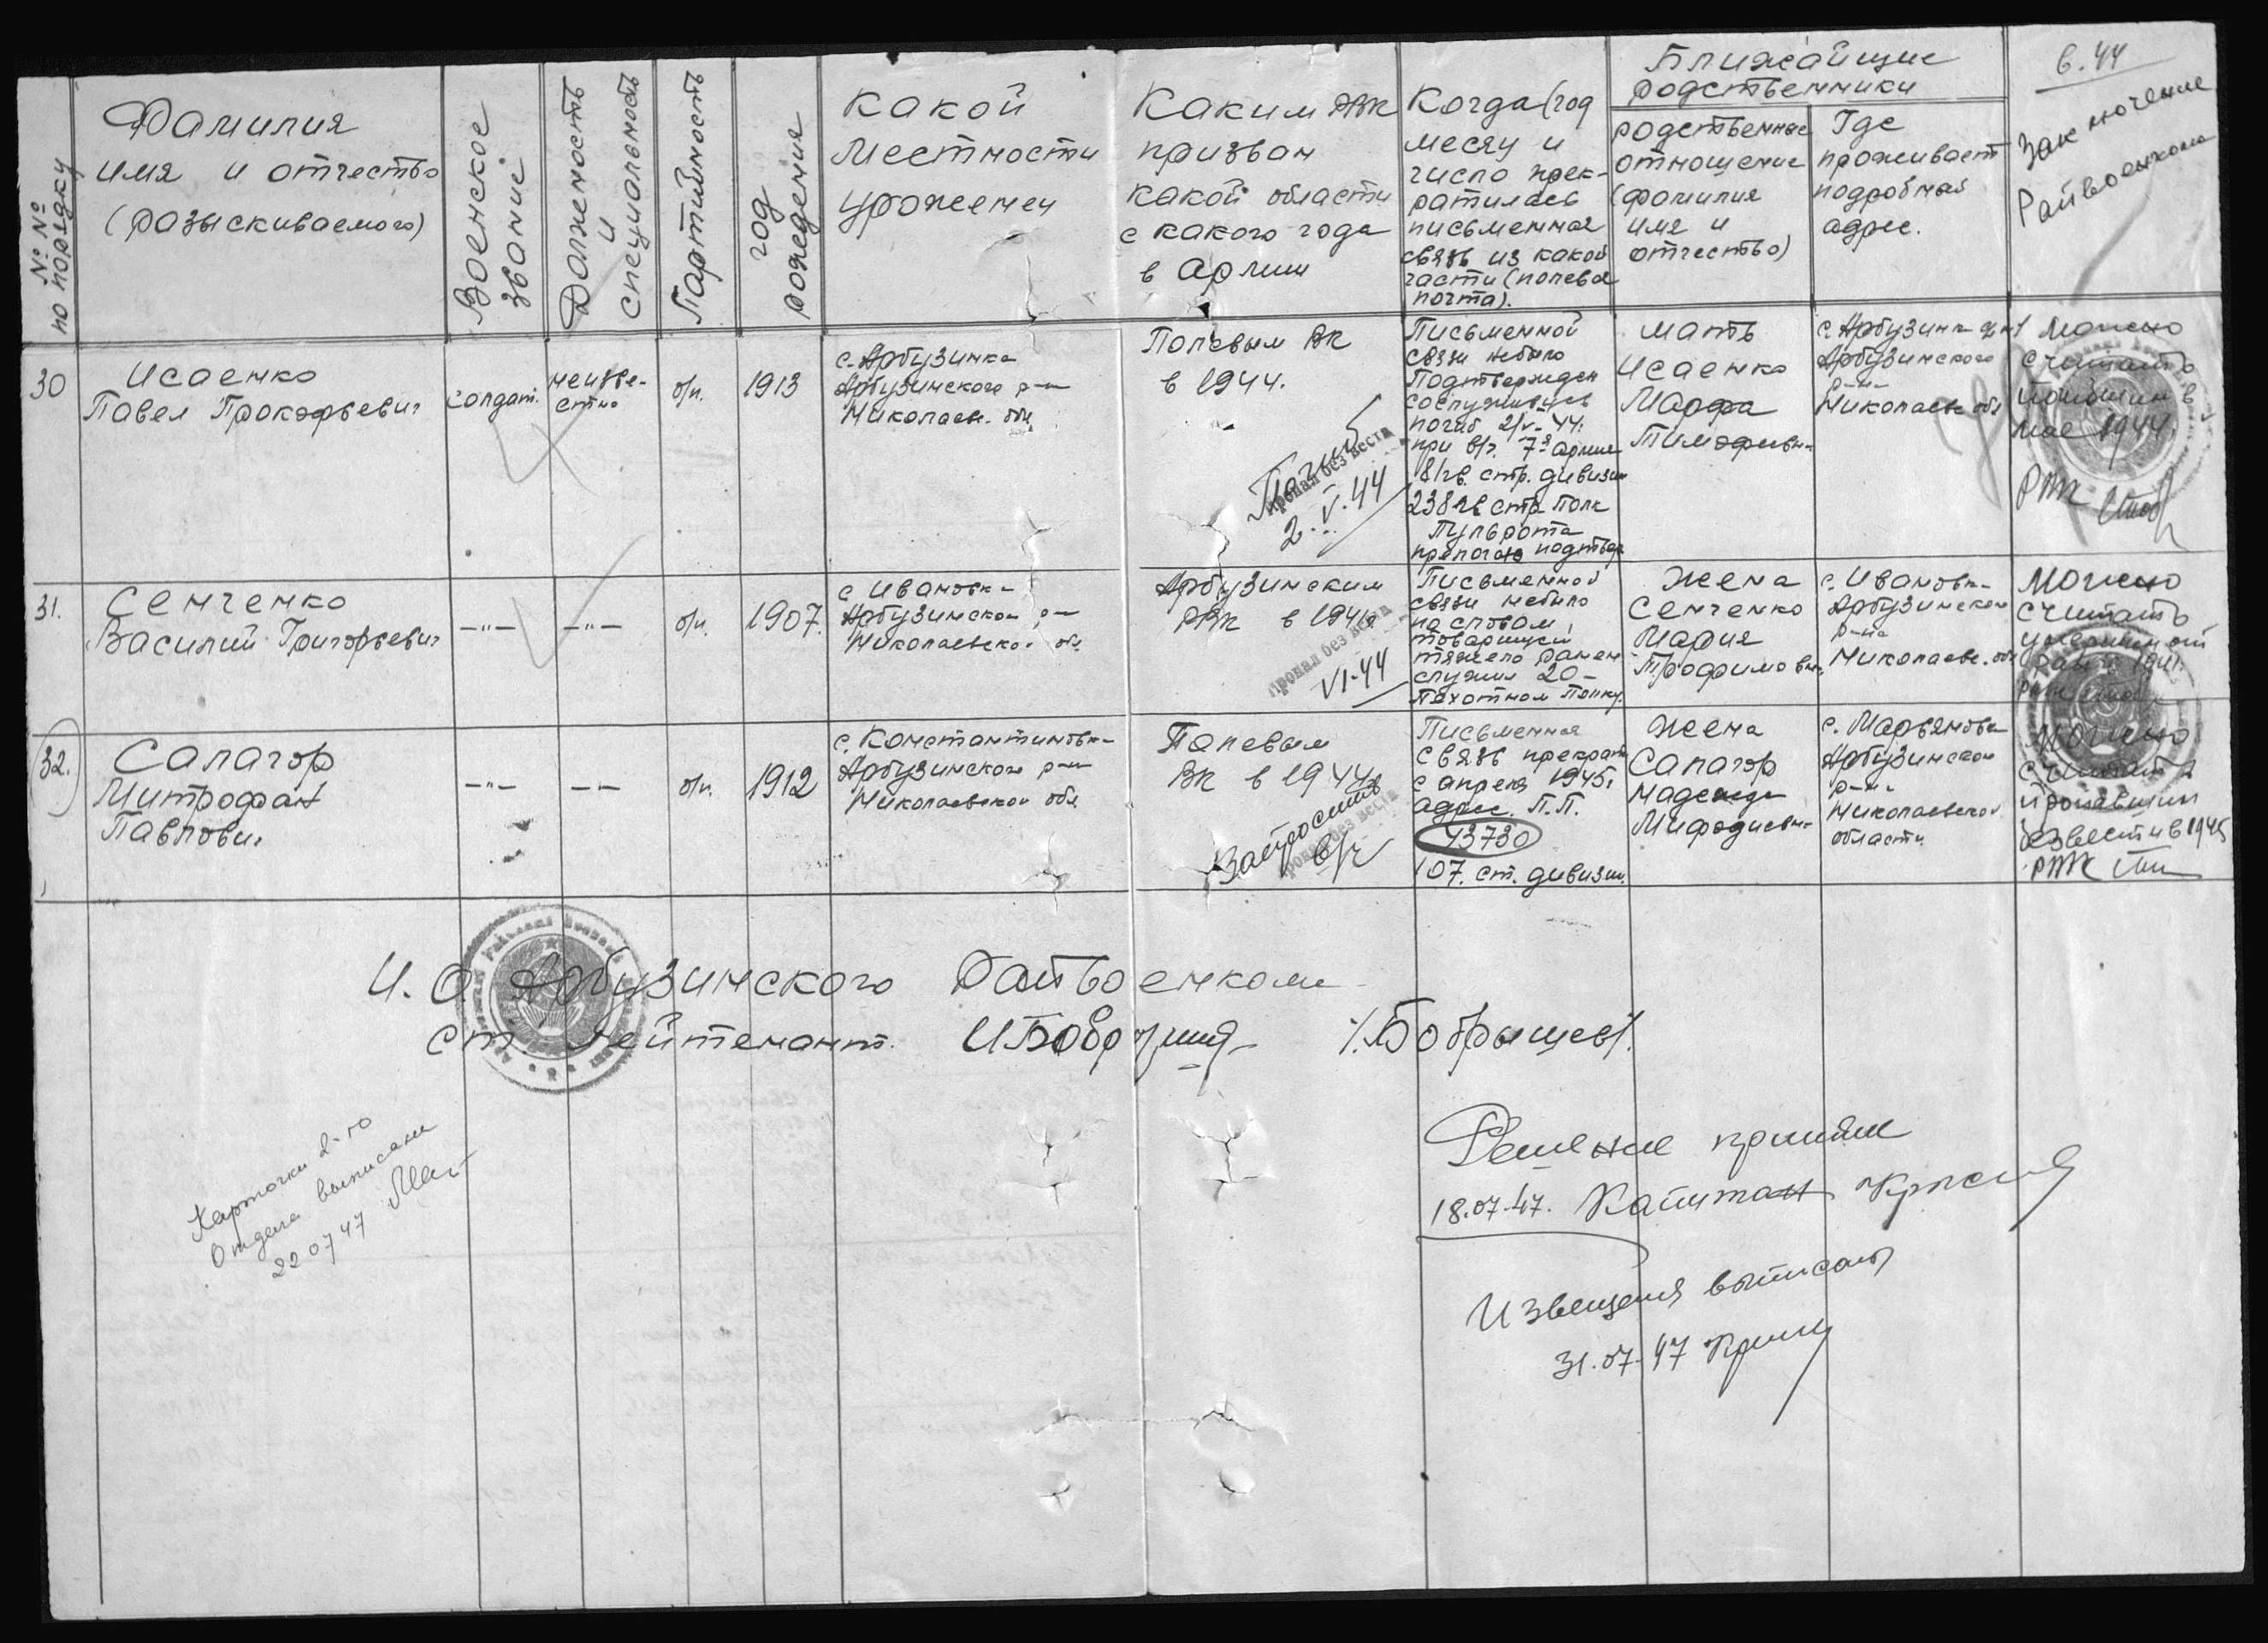 № №
по порядку
Фамилия
имя и отчество
(разыскиваемого)
Военское
звание
Должность
и
специальность
Партийность
год
рождения
какой
местности
уроженец
Каким РВК
призван
какой области
с какого года
в Армии
Когда (год
месяц и
число прек-
ратилась
письменная
связь из какой
части (полевая
почта).
Ближайшие
родственники
родственное
отношение
(фамилия
имя и
отчество)
Где
проживает
подробный
адрес.
6.44
Заключение
Райвоенкома
30
Исаенко
Павел Прокофьевич
солдат.
неизве-
стно
б/п.
1913
с. Арбузинка
Арбузинского р-на
Николаев. обл.
Полевым ВК
в 1944.
Погиб
Пропал без вести
2.V.44
Письменной
связи небыло
Подтвержден
сослуживцев
погиб 2/V-44.
при в/ч. 7-я армия
8 гв. стр. дивизии
238 гв стр полк
Пульрота
прилогаю подтвер
мать
Исаенко
Марфа
Тимофеевн-
с. Арбузинка
Арбузинского
р-на
Николаевс обл
Можно
считать
погибшим в
мае 1944.
РВК
31.
Семченко
Василий Григорьевич
—"—
—"—
б/п.
1907.
с Ивановка
Арбузинского р-н
Николаевской обл
Арбузинским
РВК в 1941г
Пропал без вести
VI-44
Письменной
связи небыло
по словам
товарищей
тяжело ранен
служил 20-
пехотном полку.
жена
Семченко
Мария
Трофимовн-
с. Ивановк-
Арбузинского
р-на
Николаевс. обл
Можно
считать
умершим от
ран в 1941.
32.
Салагор
Митрофан
Павлович
—"—
—"—
б/п.
1912
с. Константиновк-
Арбузинского р-н
Николаевской обл
Полевым
ВК в 1944г
Запросить
в/ч
Пропал без вести
Письменная
связь прекрат
с апреля 1945г
адрес. П.П.
43730
107. ст. дивизии.
жена
Салагор
Надежда
Мифодиевн-
с. Марьяновка
Арбузинской
р-на
Николаевской
области
Можно
считать
пропавшим
безвести в 1945
РВК
И. О. Арбузинского Райвоенкома
ст. лейтенант. /.Бобрышев/.
Карточки 2-го
Отдела выписаны
22 07 47
Решение принял
18.07.47. Капитан
Извещения выписаны
31.07.47